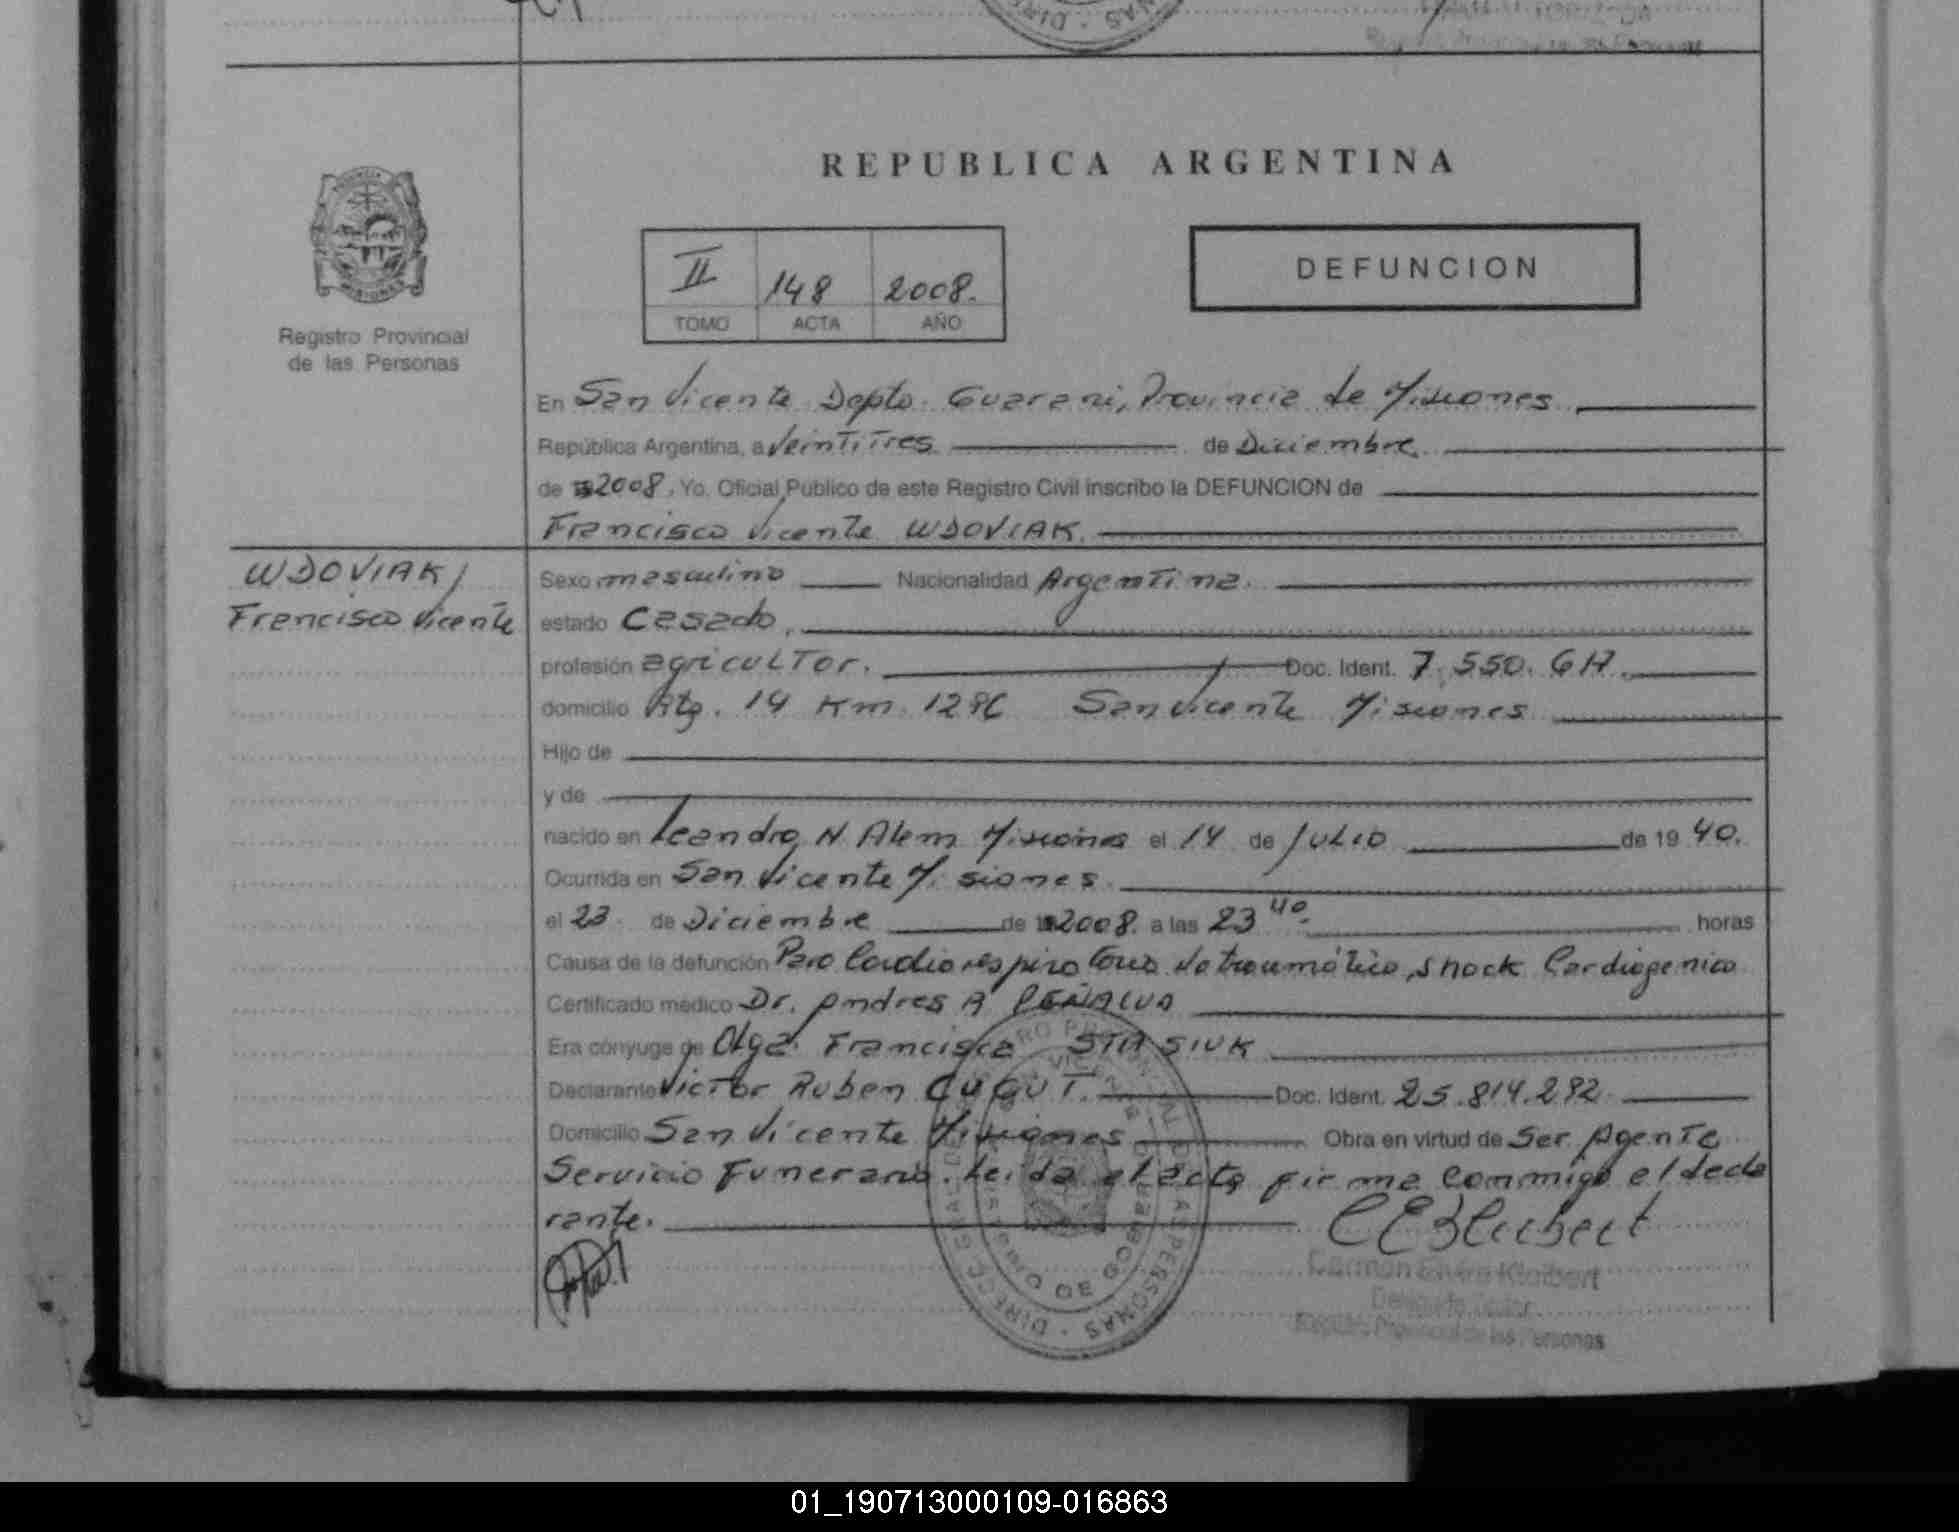 REPUBLICA ARGENTINA
PROVINCIA
MISIONES
Registro Provincial
de las Personas
II 148 2008.
TOMO ACTA AÑO
DEFUNCION
En San Vicente Depto. Guarani, Provincia de Misiones
República Argentina, a Veintitres de Diciembre
de 2008. Yo. Oficial Público de este Registro Civil inscribo la DEFUNCION de
Francisco Vicente WDOVIAK.
WDOVIAK,
Francisco Vicente
Sexo masculino Nacionalidad Argentina.
estado Casado.
profesión agricultor. Doc. Ident. 7.550.617.
domicilio Rta. 14 Km. 1286 San Vicente Misiones
Hijo de
y de
nacido en Leandro N. Alem Misiones el 14 de Julio de 19 40.
Ocurrida en San Vicente Misiones.
el 23 de Diciembre de 2008. a las 23 40. horas
Causa de la defunción Paro Cardiorespiratorio No traumático, shock Cardiogenico
Certificado médico Dr. Andres A PEÑALVA
Era cónyuge de Olga Francisca STASIUK
Declarante Victor Ruben CUGUT. Doc. Ident. 25.814.292.
Domicilio San Vicente Misiones Obra en virtud de Ser Agente
Servicio Funerario. Leida el acta firma conmigo el decla
rante.
Carmen Elvira Klaibert
Registro Provincial de las Personas
01_190713000109-016863